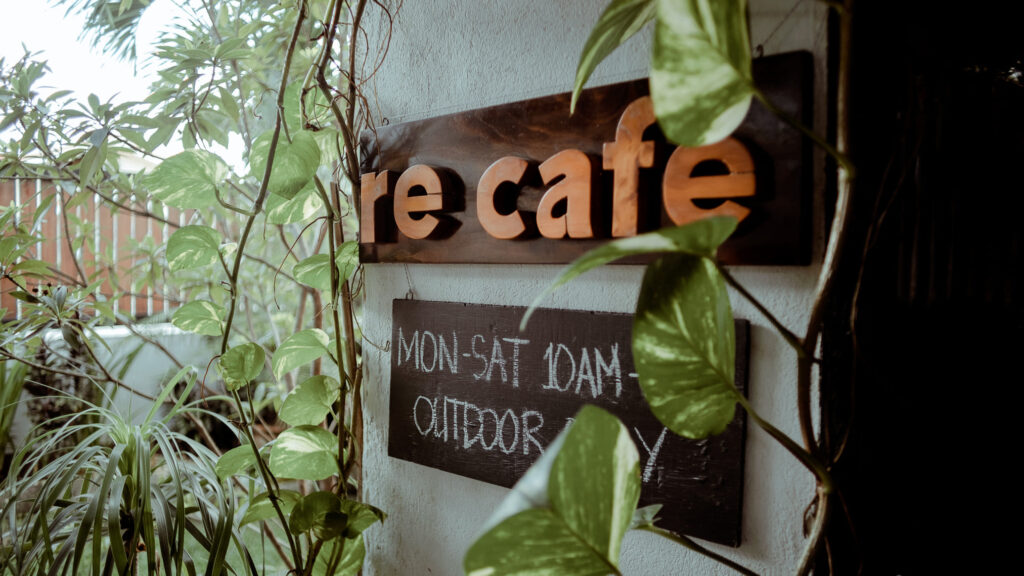 re cafe
MON-SAT 10AM-
OUTDOOR